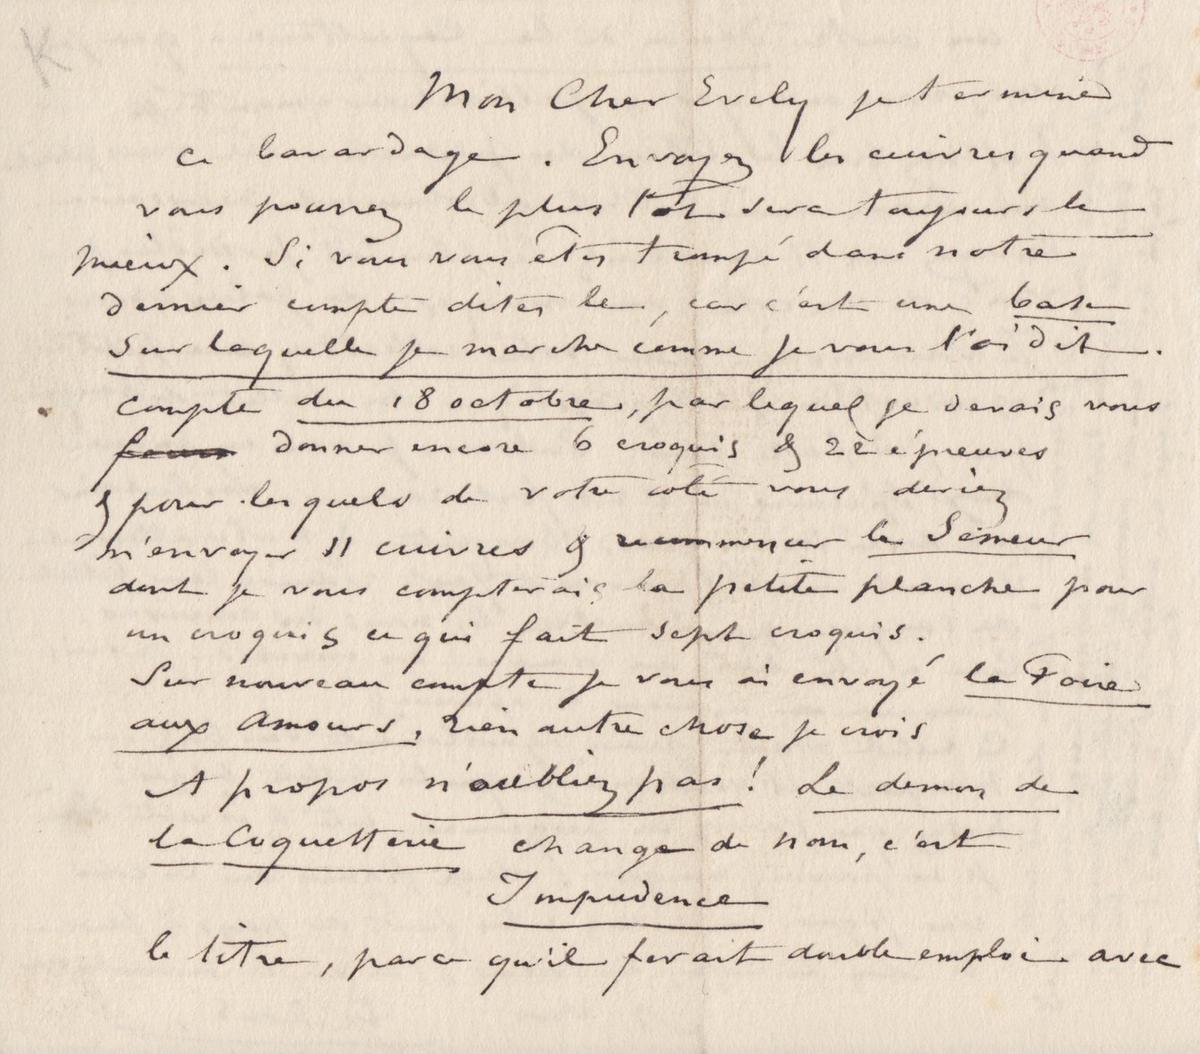 Mon Cher Evely je termine
ce bavardage. Envoyez les cuivres quand
vous pourrez le plus tôt sera toujours le
mieux. Si vous vous êtes trompé dans notre
dernier compte dites le, car c'est une base
sur laquelle je marche comme je vous l'ai dit.
compte du 18 octobre, par lequel je devais vous
donner encore 6 croquis & 22 épreuves
& pour lesquels de votre coté vous deviez
m'envoyer 11 cuivres & recommencer le Semeur
dont je vous compterais la petite planche pour
un croquis ce qui fait sept croquis.
Sur nouveau compte je vous ai envoyé la Foire
aux Amours, rien autre chose je crois
A propos n'oubliez pas! Le demon de
la Coquetterie change de nom, c'est
Impudence
le titre, parce qu'il ferait double emploi avec